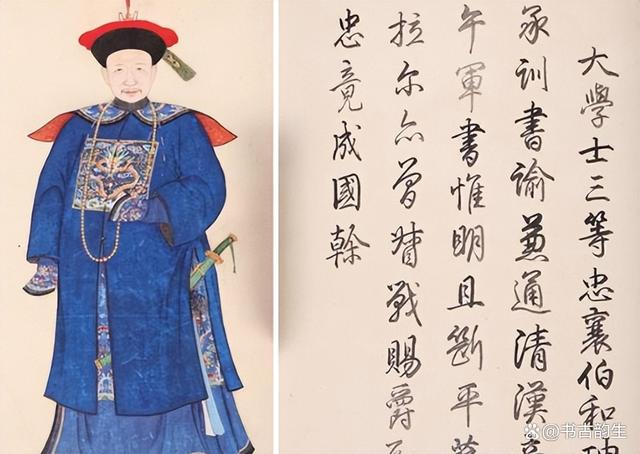 大學士三等忠襄伯和珅
承訓書諭兼通清漢
午軍書惟明且斷平
拉尔亦曾督戰賜爵
忠竟成國榦
@书古韵生